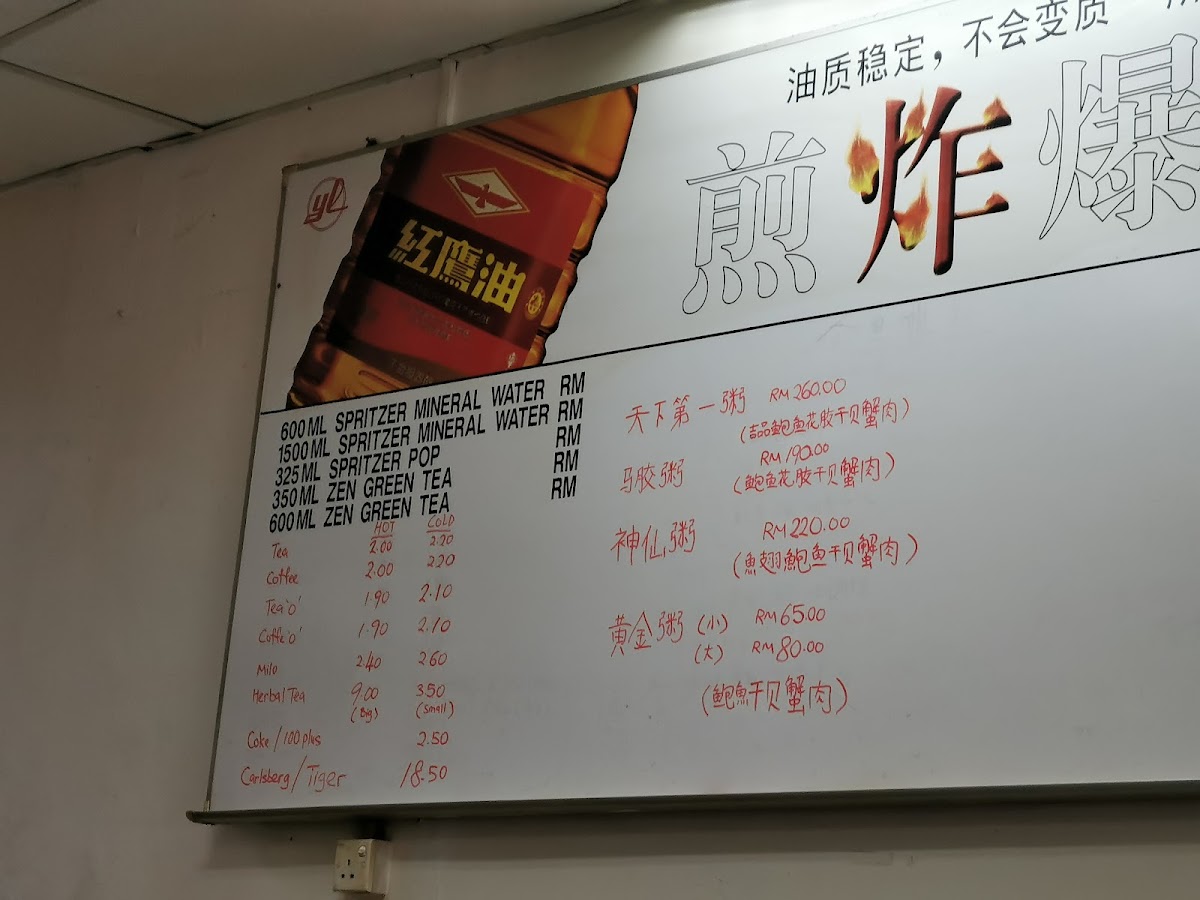 油质稳定，不会变质
煎炸爆
yl
紅鷹油
600ML SPRITZER MINERAL WATER RM
1500ML SPRITZER MINERAL WATER RM
325ML SPRITZER POP RM
350ML ZEN GREEN TEA RM
600ML ZEN GREEN TEA RM
HOT COLD
Tea 2.00 2.20
Coffee 2.00 2.20
Tea 'o' 1.90 2.10
Coffe 'o' 1.90 2.10
Milo 2.40 2.60
Herbal Tea 9.00 3.50
(Big) (Small)
Coke / 100 plus 2.50
Carlsberg / Tiger 18.50
天下第一粥 RM 260.00
(吉品鲍鱼花胶干贝蟹肉)
马胶粥 RM 190.00
(鲍鱼花胶干贝蟹肉)
神仙粥 RM 220.00
(魚翅鲍鱼干贝蟹肉)
黄金粥 (小) RM 65.00
(大) RM 80.00
(鲍魚干贝蟹肉)